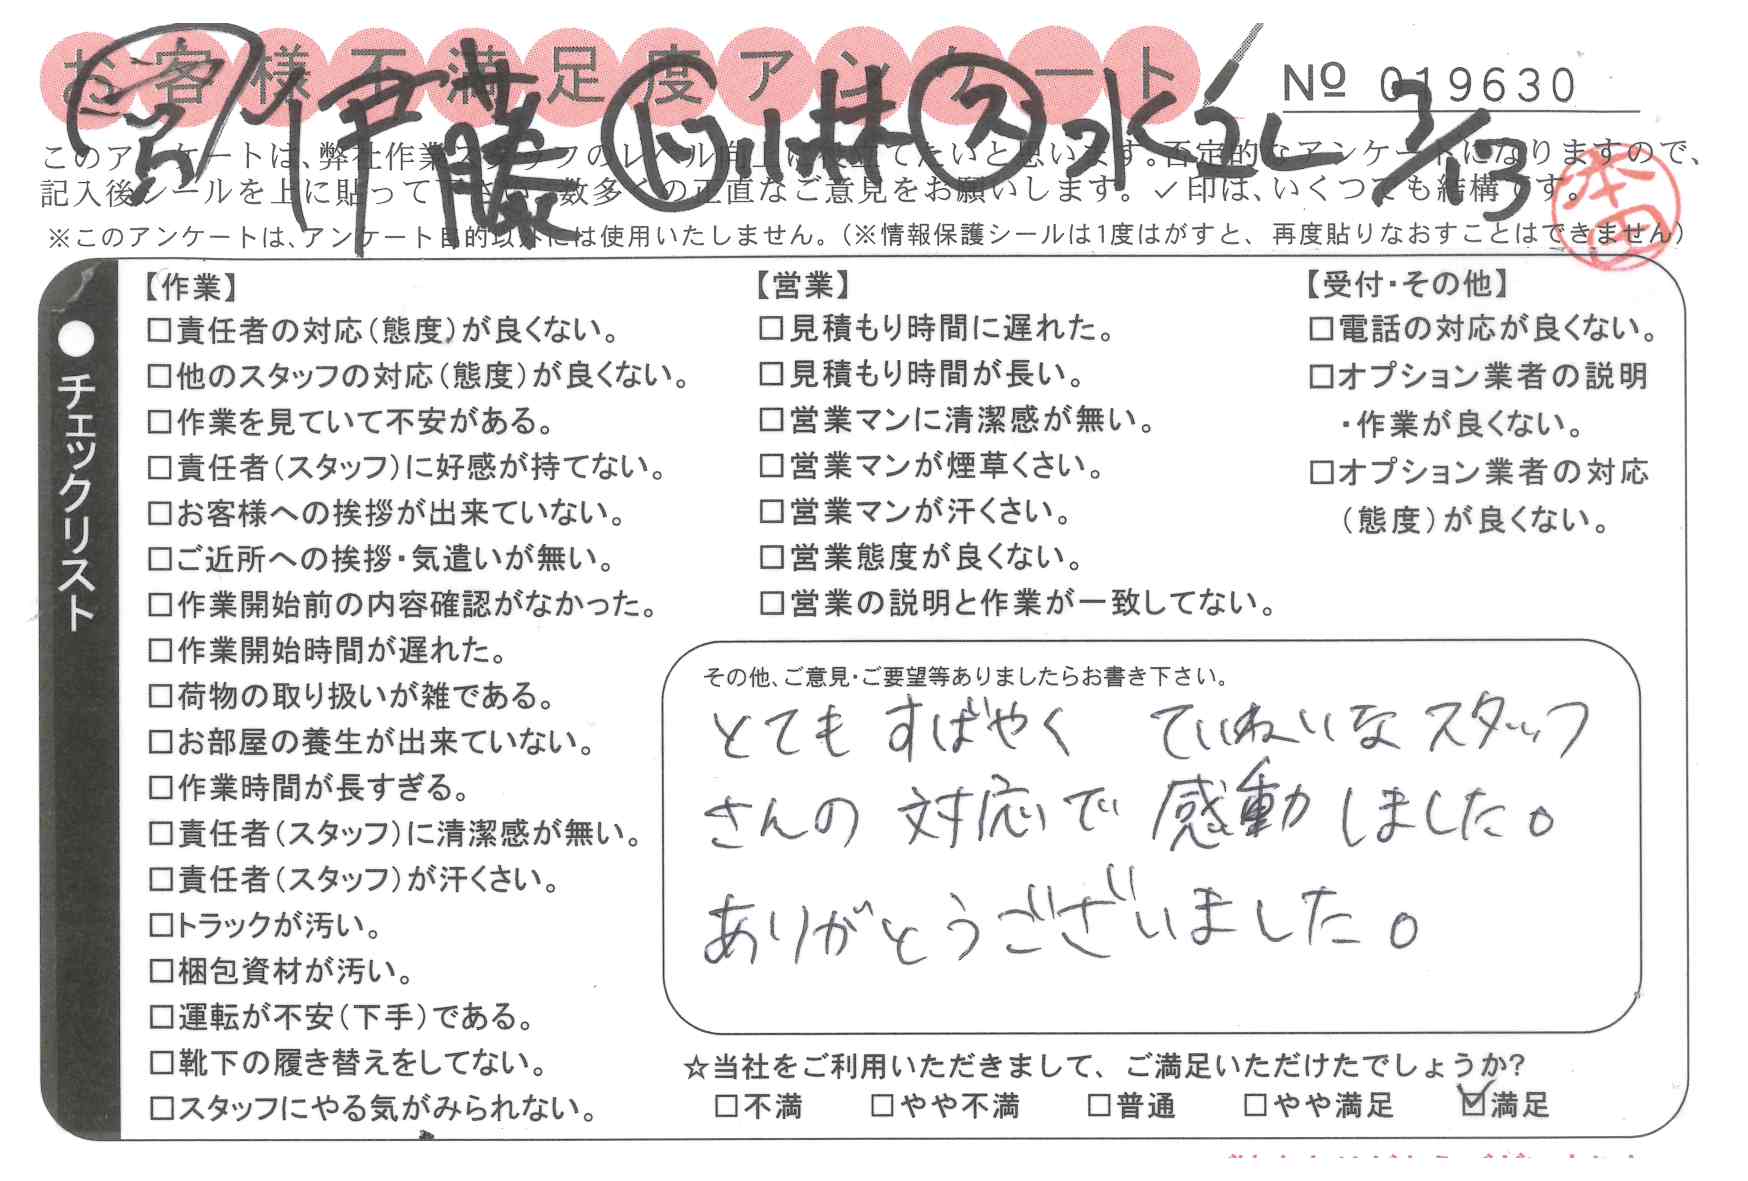 お客様不満足度アンケート
Nº 019630
営 伊藤 ト 小林 ス 7/13
このアンケートは、弊社作業スタッフのレベル向上に役立てたいと思います。否定的なアンケートになりますので、
記入後シールを上に貼って下さい。数多くの正直なご意見をお願いします。✓印は、いくつでも結構です。
本田
※このアンケートは、アンケート目的以外には使用いたしません。(※情報保護シールは1度はがすと、再度貼りなおすことはできません)
●チェックリスト
【作業】
□責任者の対応(態度)が良くない。
□他のスタッフの対応(態度)が良くない。
□作業を見ていて不安がある。
□責任者(スタッフ)に好感が持てない。
□お客様への挨拶が出来ていない。
□ご近所への挨拶・気遣いが無い。
□作業開始前の内容確認がなかった。
□作業開始時間が遅れた。
□荷物の取り扱いが雑である。
□お部屋の養生が出来ていない。
□作業時間が長すぎる。
□責任者(スタッフ)に清潔感が無い。
□責任者(スタッフ)が汗くさい。
□トラックが汚い。
□梱包資材が汚い。
□運転が不安(下手)である。
□靴下の履き替えをしてない。
□スタッフにやる気がみられない。
【営業】
□見積もり時間に遅れた。
□見積もり時間が長い。
□営業マンに清潔感が無い。
□営業マンが煙草くさい。
□営業マンが汗くさい。
□営業態度が良くない。
□営業の説明と作業が一致してない。
【受付・その他】
□電話の対応が良くない。
□オプション業者の説明
・作業が良くない。
□オプション業者の対応
(態度)が良くない。
その他、ご意見・ご要望等ありましたらお書き下さい。
とても すばやく ていねいなスタッフ
さんの 対応で 感動しました。
ありがとうございました。
☆当社をご利用いただきまして、ご満足いただけたでしょうか?
□不満 □やや不満 □普通 □やや満足 ☑満足